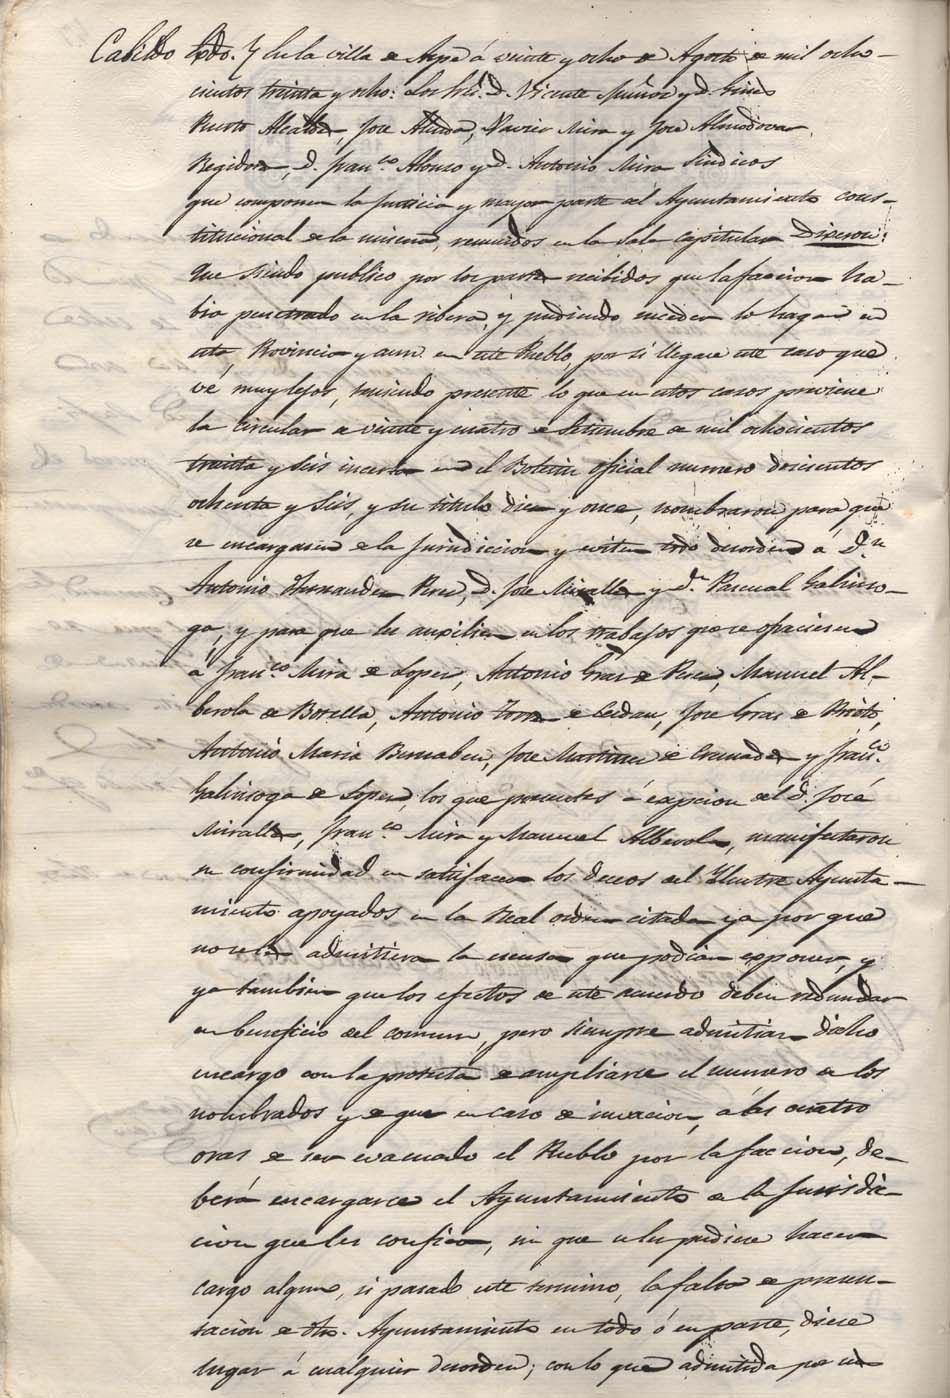 Cabildo En la villa de Aspe á veinte y ocho de Agosto de mil ocho-
cientos treinta y ocho: Los Sres. D. Vicente Muñoz y D. Gines
Puerto Alcaldes, Jose Alluda, Navier Mira y Jose Almodovar
Regidores, D. Franco. Alonso y D. Antonio Mira Sindicos
que componen la Justicia y mayor parte del Ayuntamiento cons-
titucional de la misma, reunidos en la Sala capitular Dijeron:
Que siendo publico por los partes recibidos que la faccion ha-
bia penetrado en la ribera, y pudiendo suceder lo haga en
esta Provincia y aun en este Pueblo, por si llegare este caso que
vé muy lejos, teniendo presente lo que en estos casos previene
la circular de veinte y cuatro de Setiembre de mil ochocientos
treinta y seis incerta en el Boletin oficial numero doscientos
ochenta y seis, y su titulo diez y once, nombraron para que
se encargasen de la Jurisdiccion y eviten todo desorden á Dn
Antonio Hernandez Perez, D. Jose Miralles y Dn Pascual Galinso-
ga, y para que les ausilien en los trabajos que se ofreciesen
á Franco. Mira de Lopez, Antonio Gras de Perez, Manuel Al-
berola de Botella, Antonio Torres de Cerdan, Jose Gras de Prieto,
Antonio Maria Bernabeu, Jose Martinez de Cremades y Franco.
Galinsoga de Lopez, los que presentes á escpcion del D. José
Miralles, Franco. Mira y Manuel Alberola, manifestaron
su conformidad en satisfacer los deceos del Ilustre Ayunta-
miento apoyados en la Real orden citada ya por que
no se les admitiera la escusa que podian exponer, y
ya tambien que los efectos de este acuerdo deben redundar
en beneficio del comun, pero siempre admitian dicho
encargo con la protesta de ampliarse el numero de los
nombrados y de que en caso de invacion, á las cuatro
oras de ser evacuado el Pueblo por la faccion, de-
berá encargarce el Ayuntamiento de la Jurisdic-
cion que les confiera, sin que se les pudiese hacer
cargo alguno, si pasado este termino, la falta de presen-
tacion de dho. Ayuntamiento en todo ó en parte, diese
lugar á cualquier desorden; con lo que admitida por